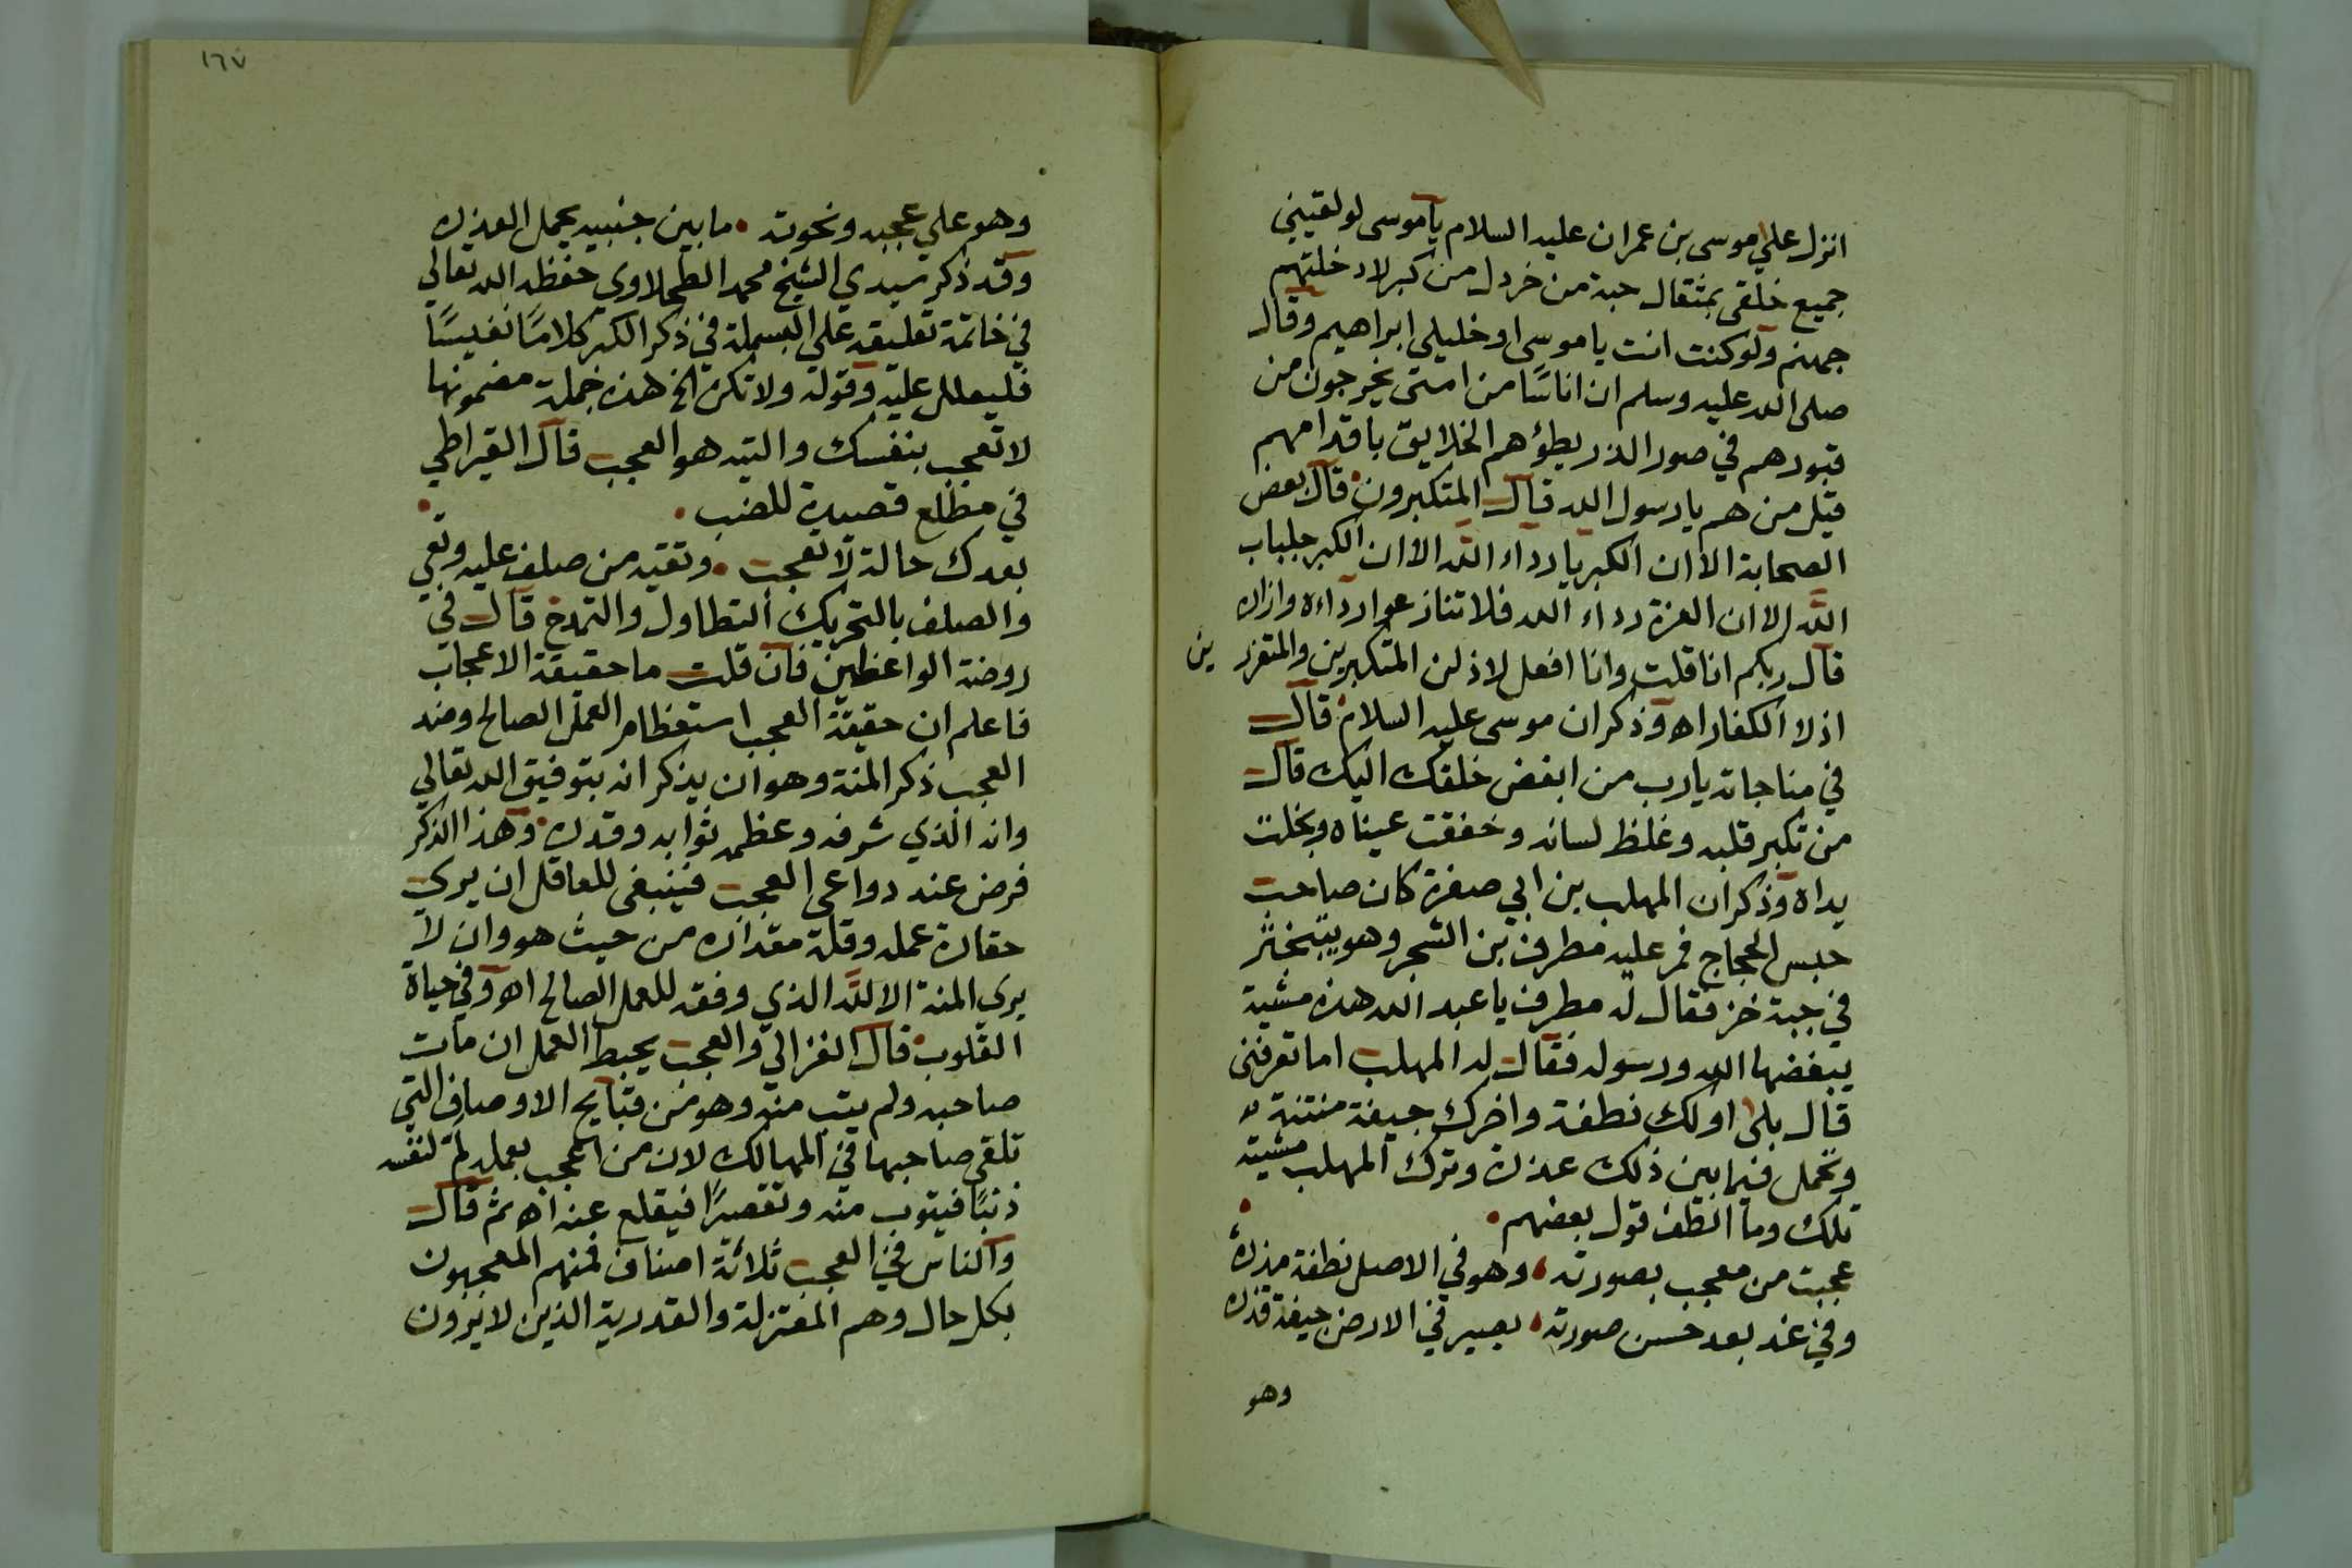 انزل علي موسى بن عمران عليه السلام يا موسى لو لقيني
جميع خلقي بمثقال حبة من خردل من كبر لادخلتهم
جهنم ولو كنت انت يا موسى او خليلي ابراهيم وقال
صلى الله عليه وسلم ان اناسًا من امتي يخرجون من
قبورهم في صور الذر يطؤهم الخلايق باقدامهم
قيل من هم يا رسول الله قال المتكبرون قال بعض
الصحابة الا ان الكبريا رداء الله الا ان الكبر جلباب
الله الا ان العزة رداء الله فلا تنازعوا رداءه وازاره
قال ربكم انا قلت وانا افعل لاذلن المتكبرين والمتعززين
اذلا الكفار اه وذكر ان موسى عليه السلام قال
في مناجاته يا رب من ابغض خلقك اليك قال
من تكبر قلبه وغلظ لسانه وخفقت عيناه وبخلت
يداه وذكر ان المهلب بن ابي صفرة كان صاحب
حبس الحجاج فمر عليه مطرف بن الشجر وهو يتبختر
في جبة خز فقال له مطرف يا عبد الله هذه مشية
يبغضها الله ورسوله فقال له المهلب اما تعرفني
قال بلى اولك نطفة واخرك جيفة منتنة
وتحمل فيما بين ذلك عذرة وترك المهلب مشيته
تلك وما الطف قول بعضهم
عجبت من معجب بصورته وهو في الاصل نطفة مذرة
وفي غد بعد حسن صورته يصير في الارض جيفة قذره
وهو
١٦٧
وهو علي عجبه ونخوته ما بين جنبيه يحمل العذره
وقد ذكر سيدي الشيخ محمد الطحلاوي حفظه الله تعالي
في خاتمة تعليقه علي البسملة في ذكر الكبر كلامًا نفيسًا
فليطلل عليه وقوله ولا تكن الخ هذه جملة مضمونها
لا تعجب بنفسك والتيه هو العجب قال القيراطي
في مطلع قصيدة للضب
بعدك حالة لا تعجب وتقيه من صلف عليه وتعي
والصلف بالتحريك التطاول والتمدح قال في
روضة الواعظين فان قلت ما حقيقة الاعجاب
فاعلم ان حقيقة العجب استعظام العمل الصالح وضد
العجب ذكر المنة وهو ان يذكر انه بتوفيق الله تعالي
وانه الذي شرفه وعظم ثوابه وقدره وهذا الذكر
فرض عند دواعي العجب فينبغي للعاقل ان يري
حقارة عمله وقلة مقداره من حيث هو وان لا
يرى المنة الا لله الذي وفقه للعمل الصالح اه وفي حياة
القلوب قال الغزالي والعجب يحبط العمل ان مات
صاحبه ولم يتب منه وهو من قبايح الاوصاف التي
تلقي صاحبها في المهالك لان من اعجب بعمله لم لنفسه
ذنبًا فيتوب منه وتقصيرًا فيقلع عنه اه ثم قال
والناس في العجب ثلاثة اصناف فمنهم المعجبون
بكل حال وهم المعتزلة والقدرية الذين لا يرون